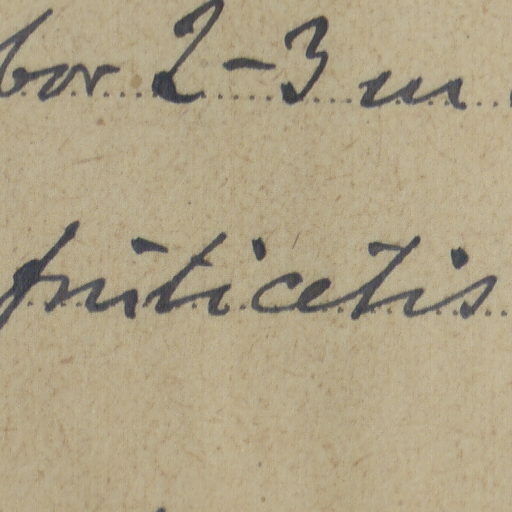 bor 2-3 m
fruticetis